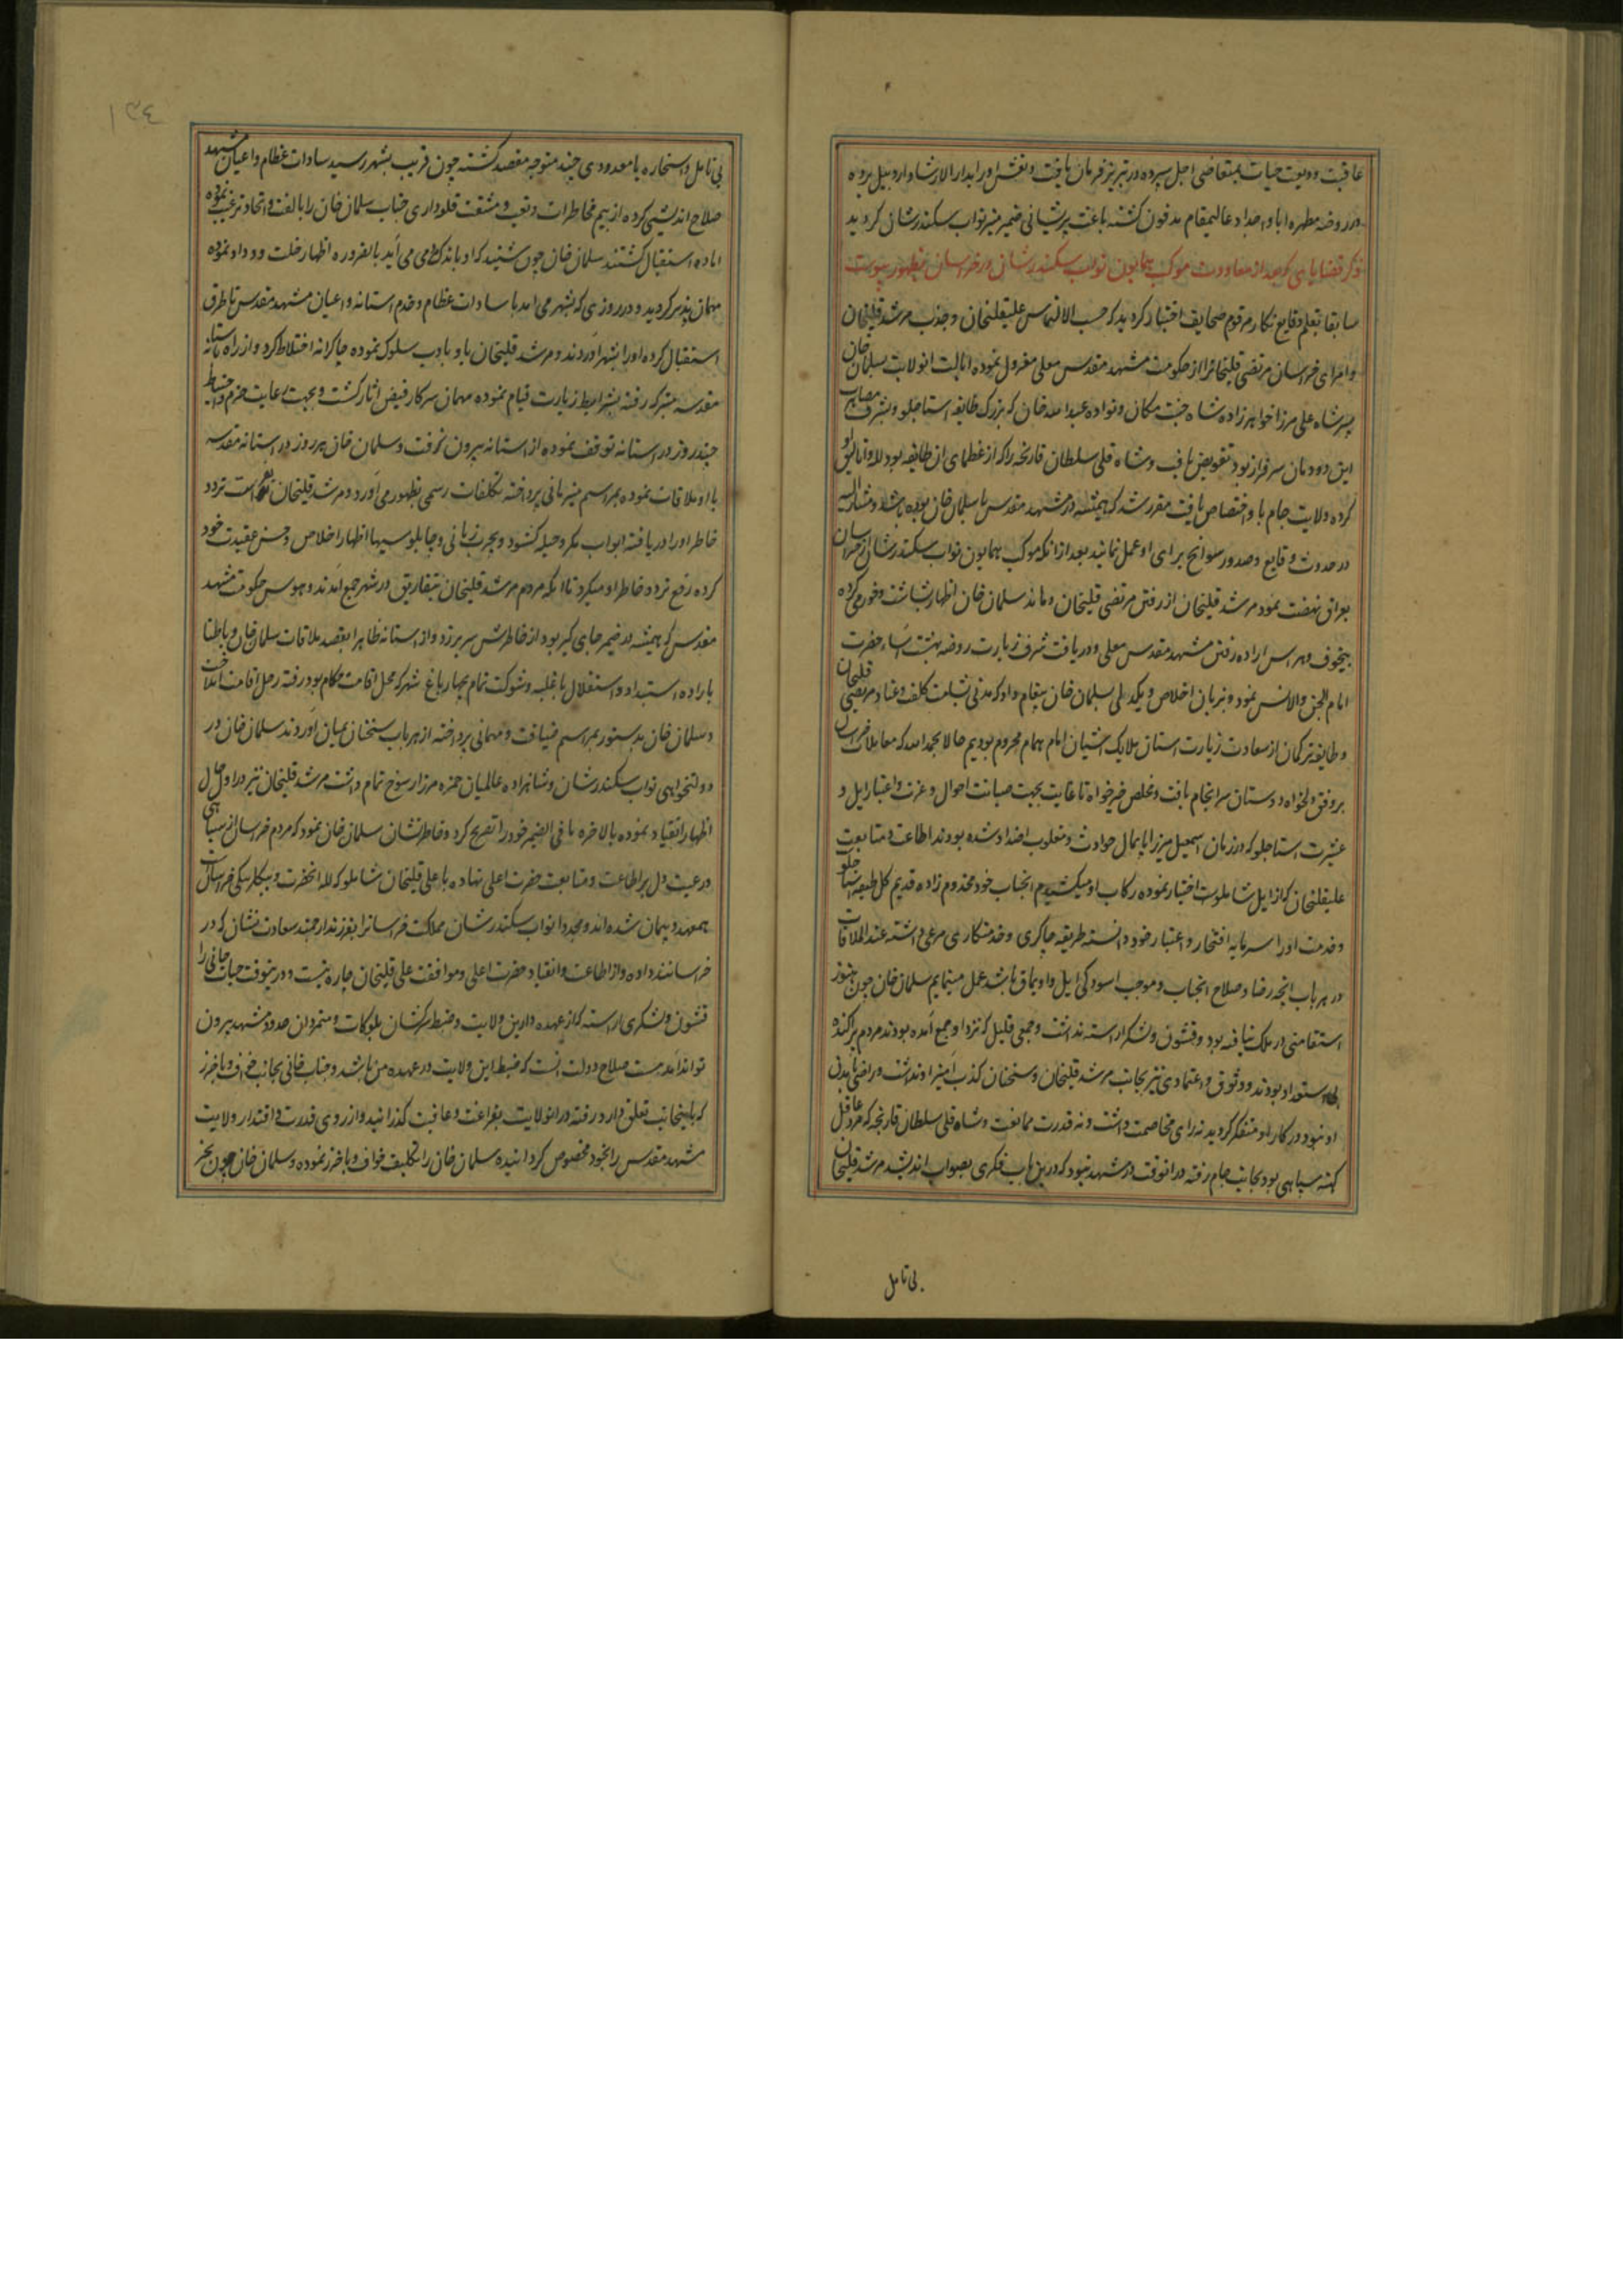 عاقبت ودیعت حیات بمتقاضی اجل سپرده در تبریز فرمان یافت و نعش او را بدارالارشاد اردبیل برده
در روضه مطهره اباء و اجداد عالیمقام مدفون کشته باعث پریشانی ضمیر منیر نواب سکندرشان کردید
ذکر قضایایی که بعد از معاودت موکب همایون نواب سکندرشان در خراسان بظهور پیوست
سابقا بقلم وقایع نکار مرقوم صحایف اخبار کردید که حسب الالتماس علیقلیخان و جذب مرشد قلیخان
و امرای خراسان مرتضی قلیخانرا از حکومت مشهد مقدس معلی معزول نموده ایالت انولایت بسلمان خان
پسر شاه علی میرزا خواهرزاده شاه جنت مکان و نواده عبدالله خان که بزرک طایفه استاجلو و بشرف مصاهرت
این دودمان سرفراز بود تفویض یافت و شاه قلی سلطان قارنجه را که از عظمای ان طایفه بود لله و اتالیق او
کرده ولایت جام باو اختصاص یافت مقرر شد که همیشه در مشهد مقدس با سلمان خان بوده باشد و مشارالیه
در حدوث وقایع و صدور سوانح برای او عمل نمایند بعد از انکه موکب همایون نواب سکندرشان از خراسان
بعراق نهضت نمود مرشد قلیخان از رفتن مرتضی قلیخان و ماندن سلمان خان اظهار بشاشت و خورمی کرده
بیخوف و هراس اراده رفتن مشهد مقدس معلی و دریافت شرف زیارت روضه بهشت آساء حضرت
امام الجن والانس نمود و بزبان اخلاص و یکدلی بسلمان خان پیغام داد که مدتی بشامت کلفت و عناد مرتضی قلیخان
و طایفه ترکمان از سعادت زیارت استان ملایک اشیان امام همام محروم بودیم حالا بحمدالله که معاملات خراسان
بر وفق دلخواه دوستان سرانجام یافت و مخلص خیرخواه تا غایت بجهت صیانت احوال و عزت و اعتبار ایل و
عشیرت استاجلو که در زمان اسمعیل میرزا پایمال حوادث و مغلوب اضداد شده بودند اطاعت و متابعت
علیقلیخان که از ایل شاملوست اختیار نموده رکاب او میکشیدم انجناب خود مخدوم زاده قدیم کل طبقه استاجلو
و خدمت او را سرمایه افتخار و اعتبار خود دانسته طریقه چاکری و خدمتکاری مرعی داشته عند الملاقات
در هر باب انچه رضا و صلاح انجناب و موجب اسودکی ایل و اویماق باشد عمل مینمایم سلمان خان چون هنوز
استقامتی در ملک نیافته بود و قشون و لشکر اراسته نداشت و جمعی قلیل که نزد او جمع آمده بودند مردم پراکنده
بی استعداد بودند و وثوق و اعتمادی نیز بجانب مرشد قلیخان و سخنان کذب آمیز او نداشت و راضی بآمدن
او نبود در کار او متفکر کردید نه رای مخاصمت داشت و نه قدرت ممانعت و شاه قلی سلطان قارنجه که مرد عاقل
کهنه سپاهی بود بجانب جام رفته در انوقت در مشهد نبود که درین باب فکری بصواب اندیشد مرشد قلیخان
بی تامل
۱۳۴
بی تامل و استخاره با معدودی چند متوجه مقصد کشته چون قریب بشهر رسید سادات عظام و اعیان مشهد
صلاح اندیشی کرده از بیم مخاطرات و تعب و مشقت قلعه‌داری جناب سلمان خان را بالفت و اتحاد ترغیب نموده
اماده استقبال کشتند سلمان خان چون شنید که او باندک مردمی می آید بالضروره اظهار خلت و وداد نموده
مهمان پذیر کردید و در روزی که بشهر می امد با سادات عظام و خدم استانه و اعیان مشهد مقدس تا طرق
استقبال کرده او را بشهر آوردند و مرشد قلیخان باو بادب سلوک نموده چاکرانه اختلاط کرد و از راه باستانه
مقدسه متبرکه رفته بشرایط زیارت قیام نموده مهمان سرکار فیض اثار کشت و بجهت رعایت حزم و احتیاط
چند روز در استانه توقف نموده از استانه بیرون نرفت و سلمان خان هر روز در استانه مقدسه
با او ملاقات نموده بمراسم میزبانی پرداخته تکلفات رسمی بظهور می آورد و مرشد قلیخان بفراست تردد
خاطر او را دریافته ابواب مکر و حیله کشود و بچرب زبانی و چاپلوسیها اظهار اخلاص و حسن عقیدت خود
کرده رفع تردد خاطر او میکرد تا انکه مردم مرشد قلیخان بتفاریق در شهر جمع آمدند و هوس حکومت مشهد
مقدس که همیشه در ضمیر جای کیر بود از خاطرش سر برزد و از استانه ظاهرا بقصد ملاقات سلمان خان و باطنا
باراده استبداد و استقلال با غلبه و شوکت تمام بچهارباغ شهر که محل اقامت حکام بود رفته رحل اقامت انداخت
و سلمان خان بدستور بمراسم ضیافت و مهمانی پرداخته از هر باب سخنان بمیان آوردند سلمان خان در
دولتخواهی نواب سکندرشان و شاهزاده عالمیان حمزه میرزا رسوخ تمام داشت مرشد قلیخان نیز در اول حال
اظهار انقیاد نموده بالاخره ما فی الضمیر خود را تصریح کرد و خاطرنشان سلمان خان نمود که مردم خراسان از سپاهی
و رعیت دل بر اطاعت و متابعت حضرت اعلی نهاده با علی قلیخان شاملو که لله انحضرت و بیکلربیکی خراسان است
همعهد و پیمان شده اند و مجددا نواب سکندرشان مملکت خراسانرا بفرزند ارجمند سعادت نشان که در
خراسانند داده و از اطاعت و انقیاد حضرت اعلی و موافقت علی قلیخان چاره نیست و درینوقت جناب خانی را
قشون و لشکری اراسته که از عهده دارایی ولایت و ضبط سرکشان بلوکات و متمردان حدود مشهد بیرون
تواند آمد نیست صلاح دولت انست که ضبط این ولایت در عهده من باشد و جناب خانی بجانب خواف و باخرز
که باینجانب تعلق دارد رفته در انولایت بفراغت و عافیت کذرانید و از روی قدرت و اقتدار ولایت
مشهد مقدس را بخود مخصوص کردانیده سلمان خان را تکلیف خواف و باخرز نموده و سلمان خان چون بجز